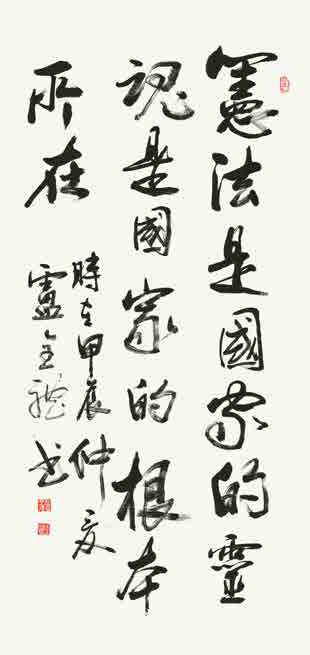 憲法是國家的靈
魂是國家的根本
所在
時在甲辰仲夏
盧全 书